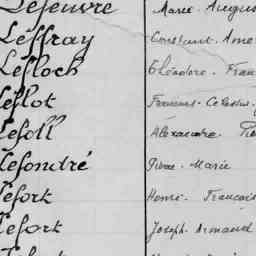 Lefeuvre Marie - Augus
Leffray Constant - Ame
Lefloch Théodore - Fran
Leflot François - Célestin
Lefoll Alexandre - Pie
Lefondré Pierre - Marie
Lefort Henri - François
Lefort Joseph - Armand